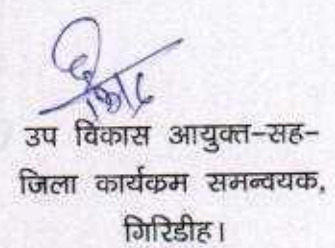 उप विकास आयुक्त-सह-
जिला कार्यकम समन्वयक,
गिरिडीह।